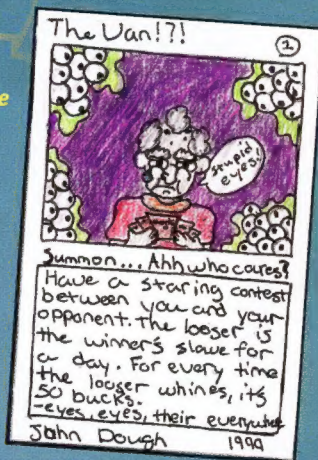 The Van!?!
1
stupid
eyes!
Summon... Ahh who cares?
Have a staring contest
between you and your
opponent. The looser is
the winner's slave for
a day. For every time
the looser whines, it's
50 bucks.
-eyes, eyes, their everywhere
John Dough 1999
e